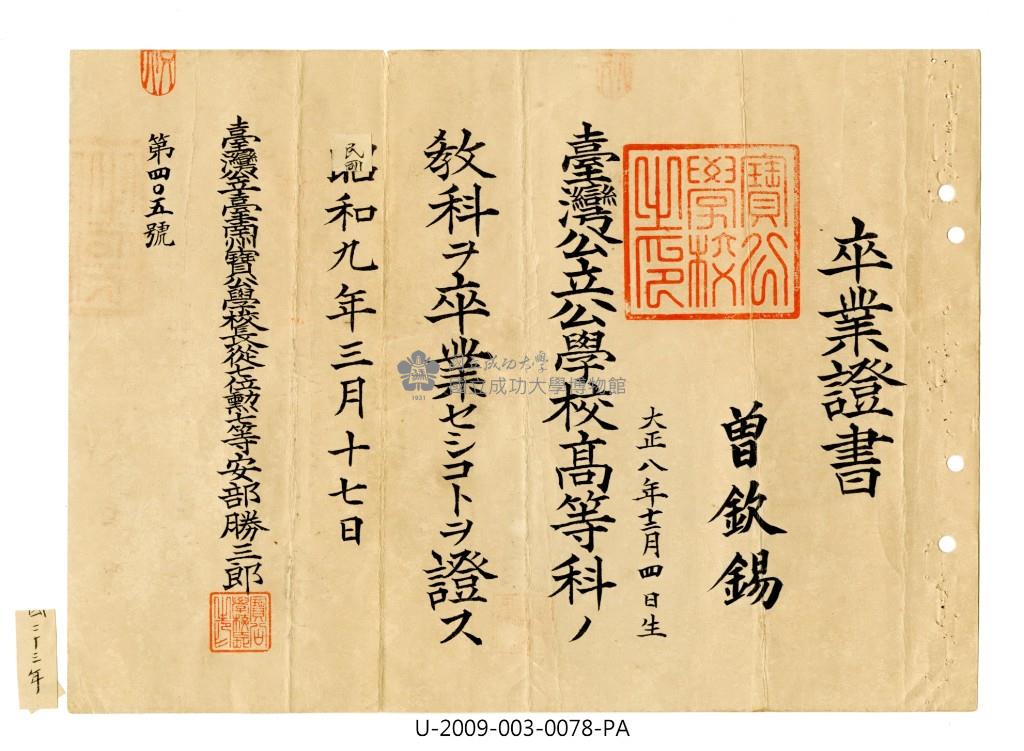 卒業證書
寶公
學校
之印
曾欽錫
大正八年十二月四日生
臺灣公立公學校高等科ノ
教科ヲ卒業セシコトヲ證ス
民國
和九年三月十七日
臺灣公立臺南州寶公學校長從七位勲七等安部勝三郎
第四〇五號
二十三年
國立成功大學
國立成功大學博物館
1931
U-2009-003-0078-PA